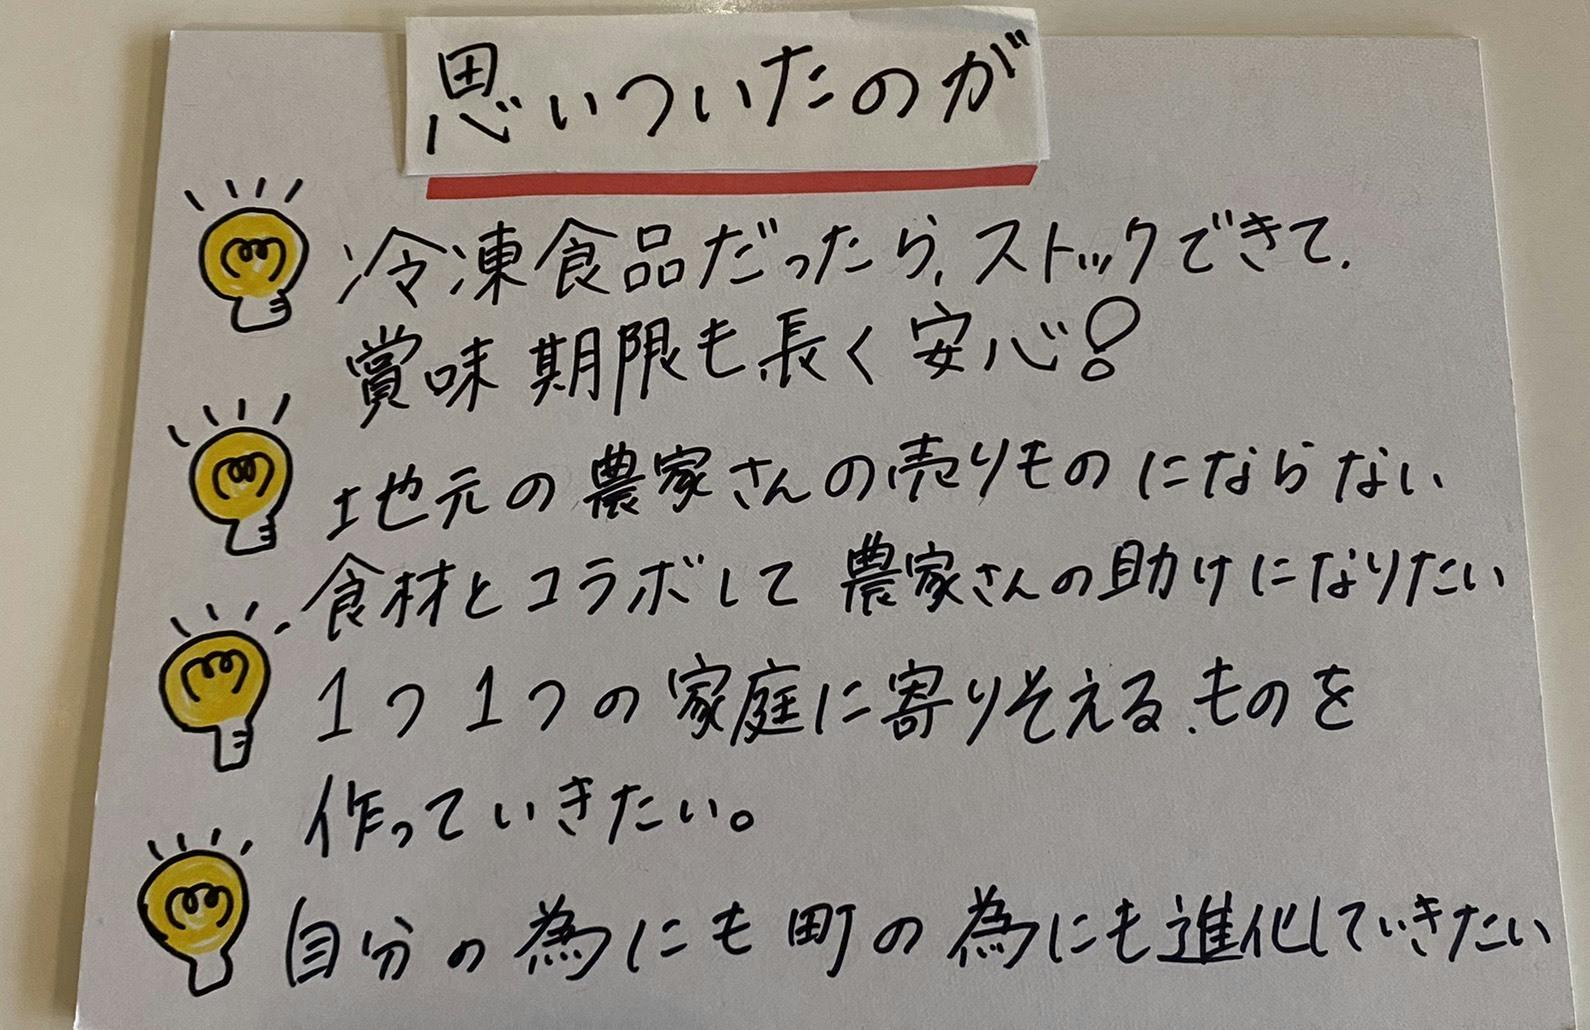 思いついたのが
冷凍食品だったら、ストックできて、
賞味期限も長く安心!
地元の農家さんの売りものにならない
食材とコラボして農家さんの助けになりたい
1つ1つの家庭に寄りそえるものを
作っていきたい。
自分の為にも町の為にも進化していきたい